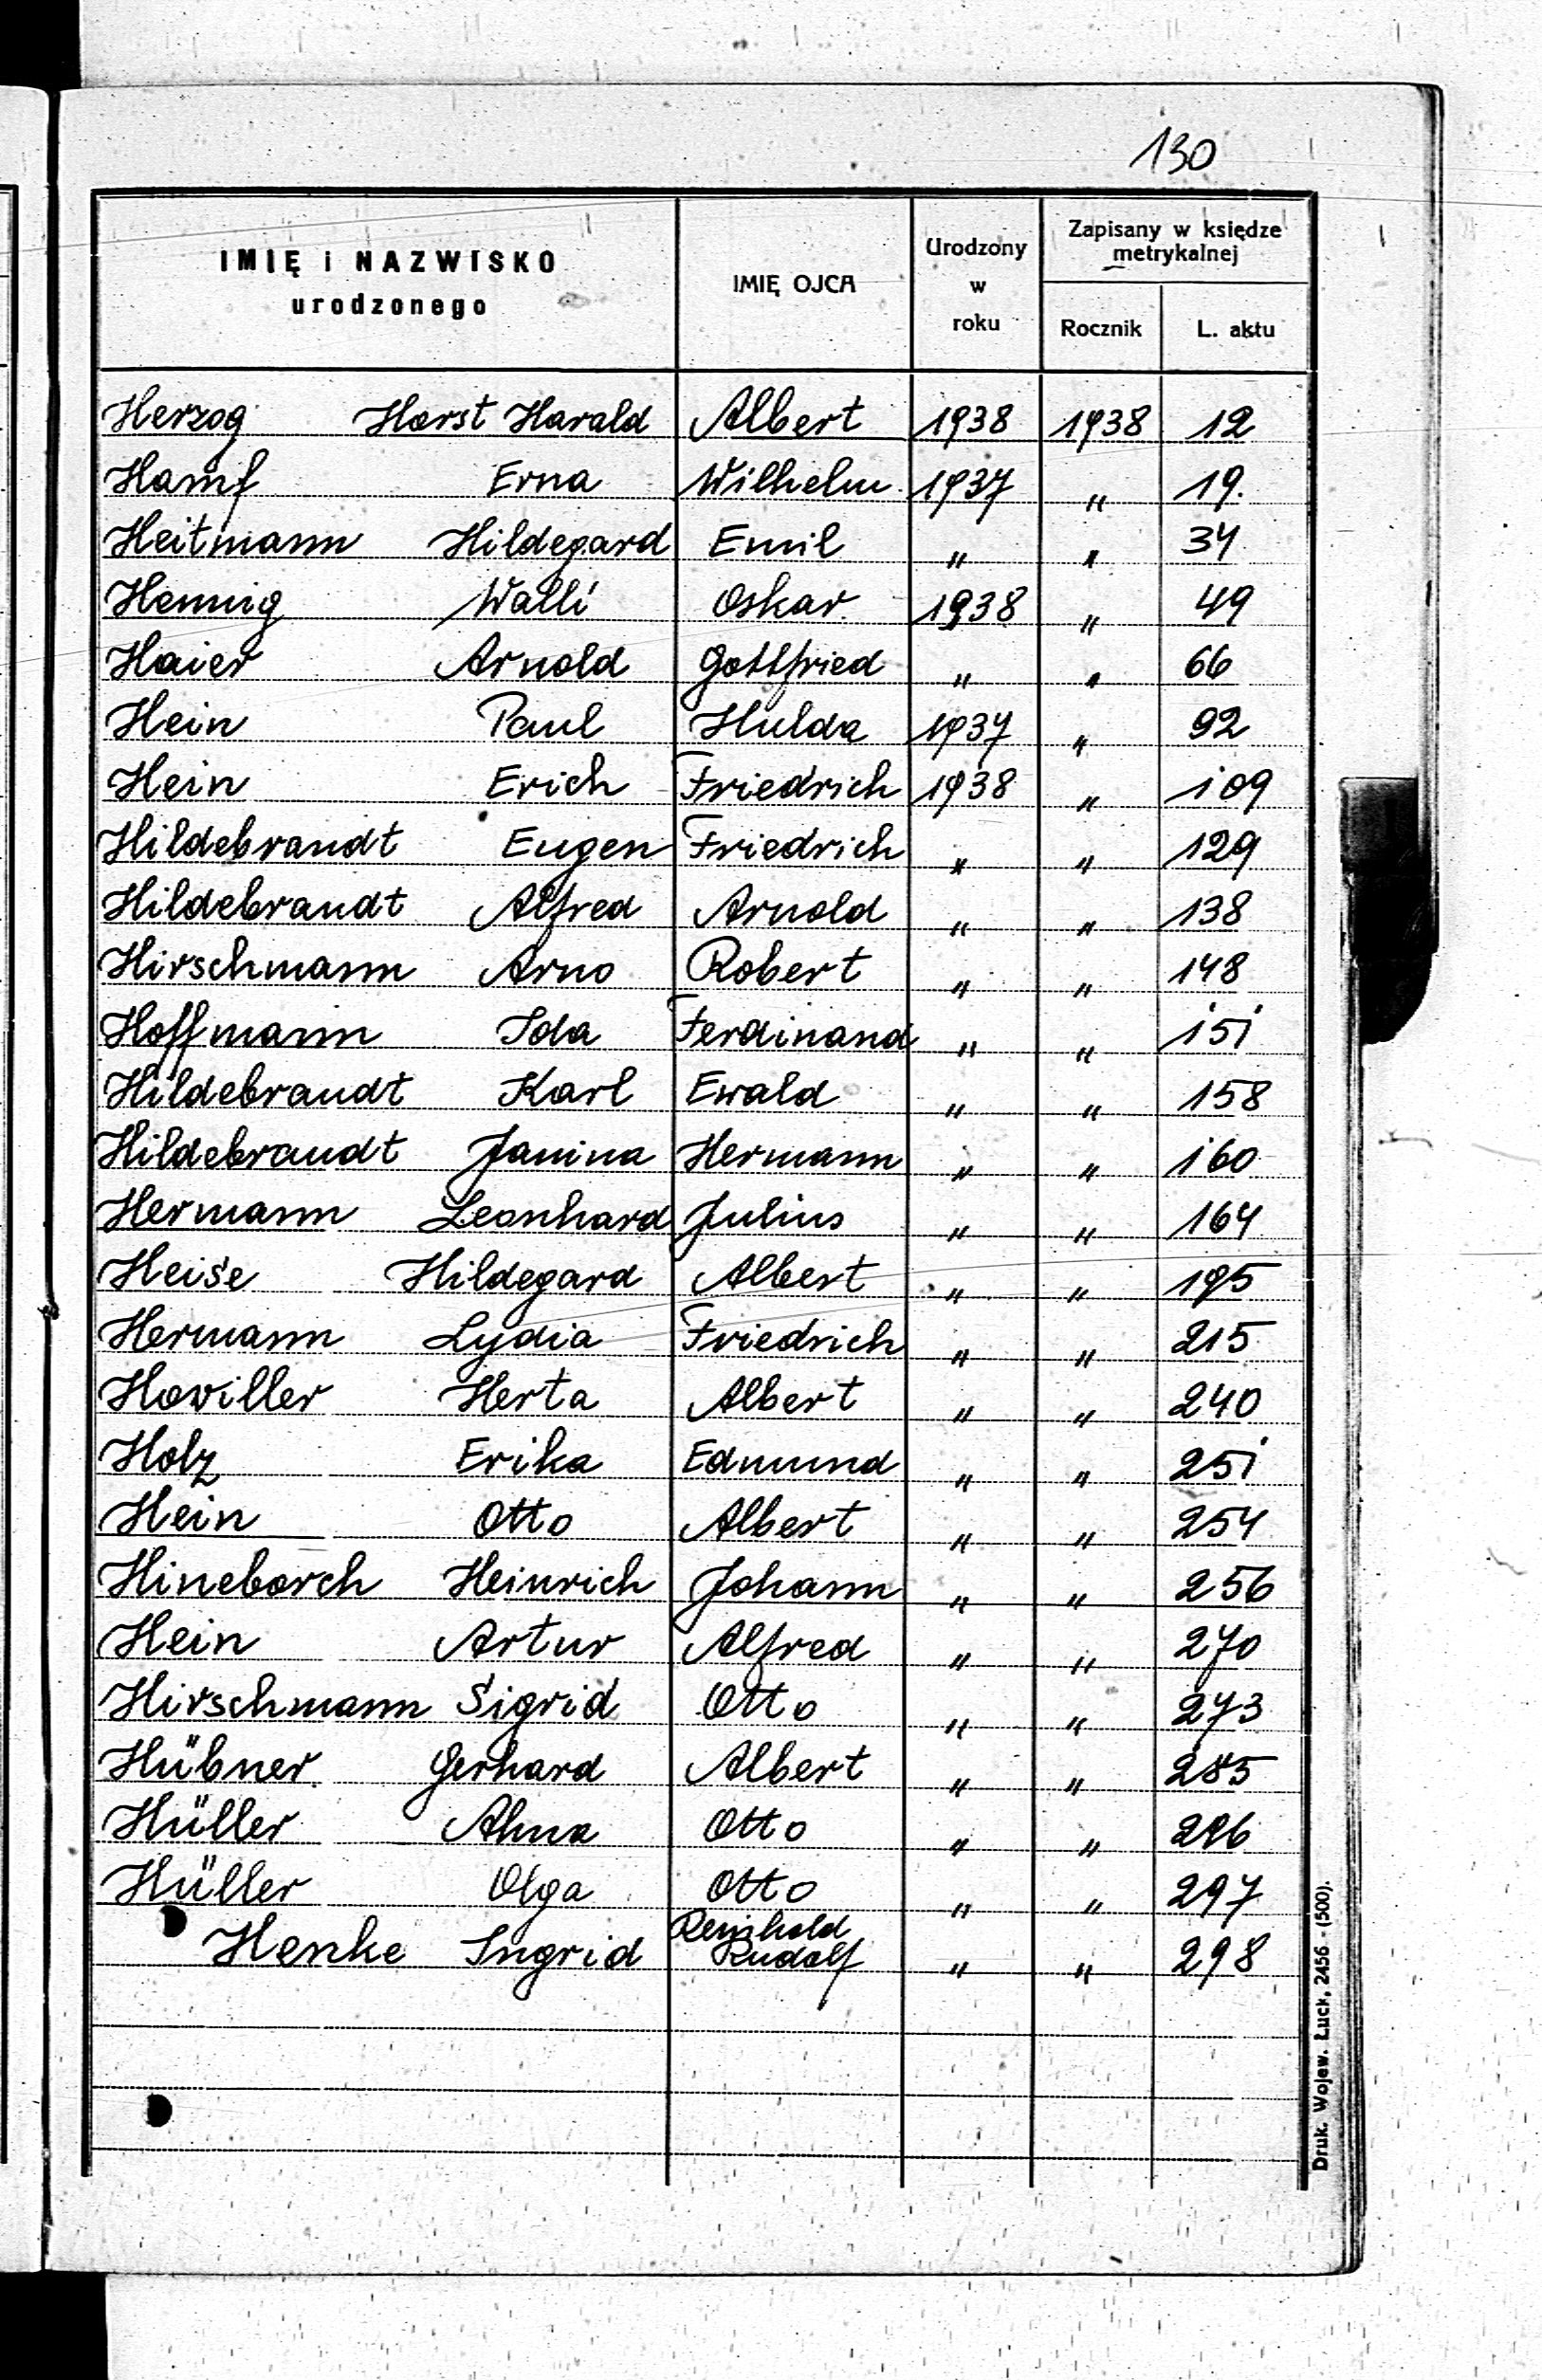 130
IMIĘ i NAZWISKO urodzonego IMIĘ OJCA Urodzony w roku Zapisany w księdze metrykalnej
Rocznik L. aktu
Herzog Horst Harald Albert 1938 1938 12
Hamf Erna Wilhelm 1937 " 19.
Heitmann Hildegard Emil " " 34
Hennig Walli Oskar 1938 " 49
Haier Arnold Gottfried " " 66
Hein Paul Hulda 1937 " 92
Hein Erich Friedrich 1938 " 109
Hildebrandt Eugen Friedrich " " 129
Hildebrandt Alfred Arnold " " 138
Hirschmann Arno Robert " " 148
Hoffmann Ida Ferdinand " " 151
Hildebrandt Karl Ewald " " 158
Hildebrandt Janina Hermann " " 160
Hermann Leonhard Julius " " 164
Heise Hildegard Albert " " 195
Hermann Lydia Friedrich " " 215
Hoviller Herta Albert " " 240
Holz Erika Edmund " " 251
Hein Otto Albert " " 254
Hineborch Heinrich Johann " " 256
Hein Artur Alfred " " 270
Hirschmann Sigrid Otto " " 273
Hübner Gerhard Albert " " 285
Hüller Alma Otto " " 296
Hüller Olga Otto " " 297
Henke Ingrid Reinhold Rudolf " " 298
Druk. Wojew. Łuck, 2456 - (500).